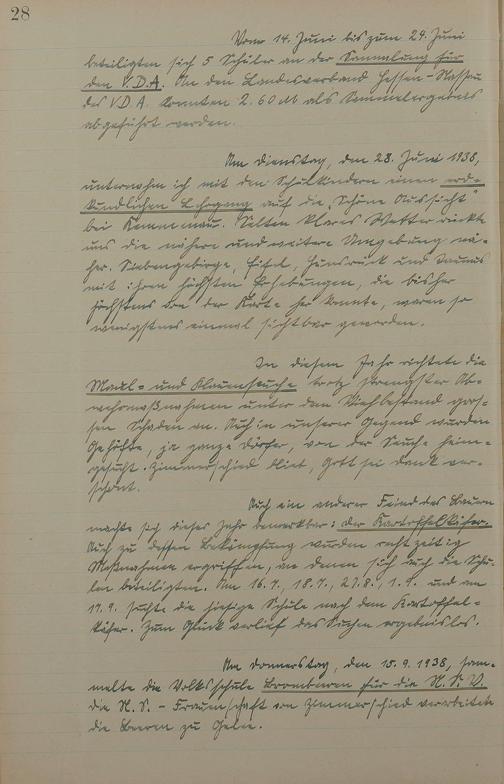 28
Vom 14. Juni bis zum 24. Juni
beteiligten sich 5 Schüler an der Sammlung für
den V.D.A. An den Landesverband Hessen-Nassau
des V.D.A. konnten 2.60 M als Sammelergebnis
abgeführt werden.
Am Dienstag, den 28. Juni 1938,
unternahm ich mit den Schulkindern einen erd-
kundlichen Lehrgang auf die „Schöne Aussicht"
bei Kemmenau. Selten klares Wetter rückte
uns die nähere und weitere Umgebung nä-
her. Siebengebirge, Eifel, Hunsrück und Taunus
mit ihren höchsten Erhebungen, die bisher
höchstens von der Karte her konnte, waren so
wenigstens einmal sichtbar geworden.
In diesem Jahr richtete die
Maul- und Klauenseuche trotz strengster Ab-
wehrmaßnahmen unter dem Viehbestand gros-
sen Schaden an. Auch in unserer Gegend wurden
Gehöfte, ja ganze Dörfer, von der Seuche heim-
gesucht. Zimmerschied blieb, Gott sei dank ver-
schont.
Auch ein anderer Feind des Bauern
machte sich dieses Jahr bemerkbar: der Kartoffelkäfer.
Auch zu dessen Bekämpfung wurden rechtzeitig
Maßnahmen ergriffen, an denen sich auch die Schu-
len beteiligten. Am 16.7., 18.7., 27.8., 1.9. und am
17.9. suchte die hiesige Schule nach dem Kartoffel-
käfer. Zum Glück verlief das Suchen ergebnislos.
Am Donnerstag, den 15.9.1938, sam-
melte die Volksschule Brombeeren für die N.S.V.
Die N.S.-Frauenschaft von Zimmerschied verarbeitete
die Beeren zu Gelee.